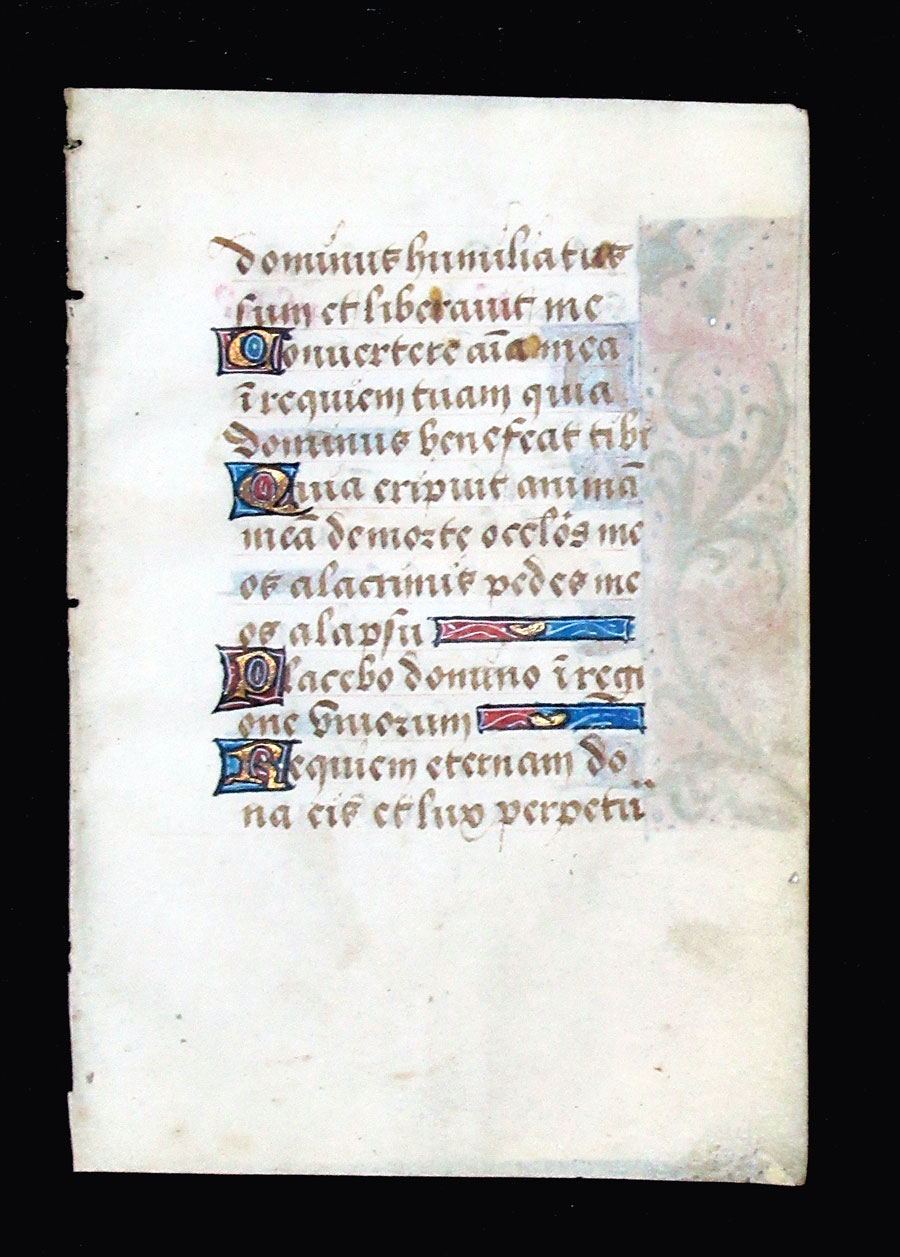 dominus humiliatus
sum et liberauit me
Conuertere aīa mea
ī requiem tuam quia
dominus benefeat tibi
Quia eripuit animā
meā de morte ocełōs me
os a lacrimis pedes me
os a lapsu
Placebo domino ī regi
one viuorum
Requiem eternam do
na eis et lux perpetu